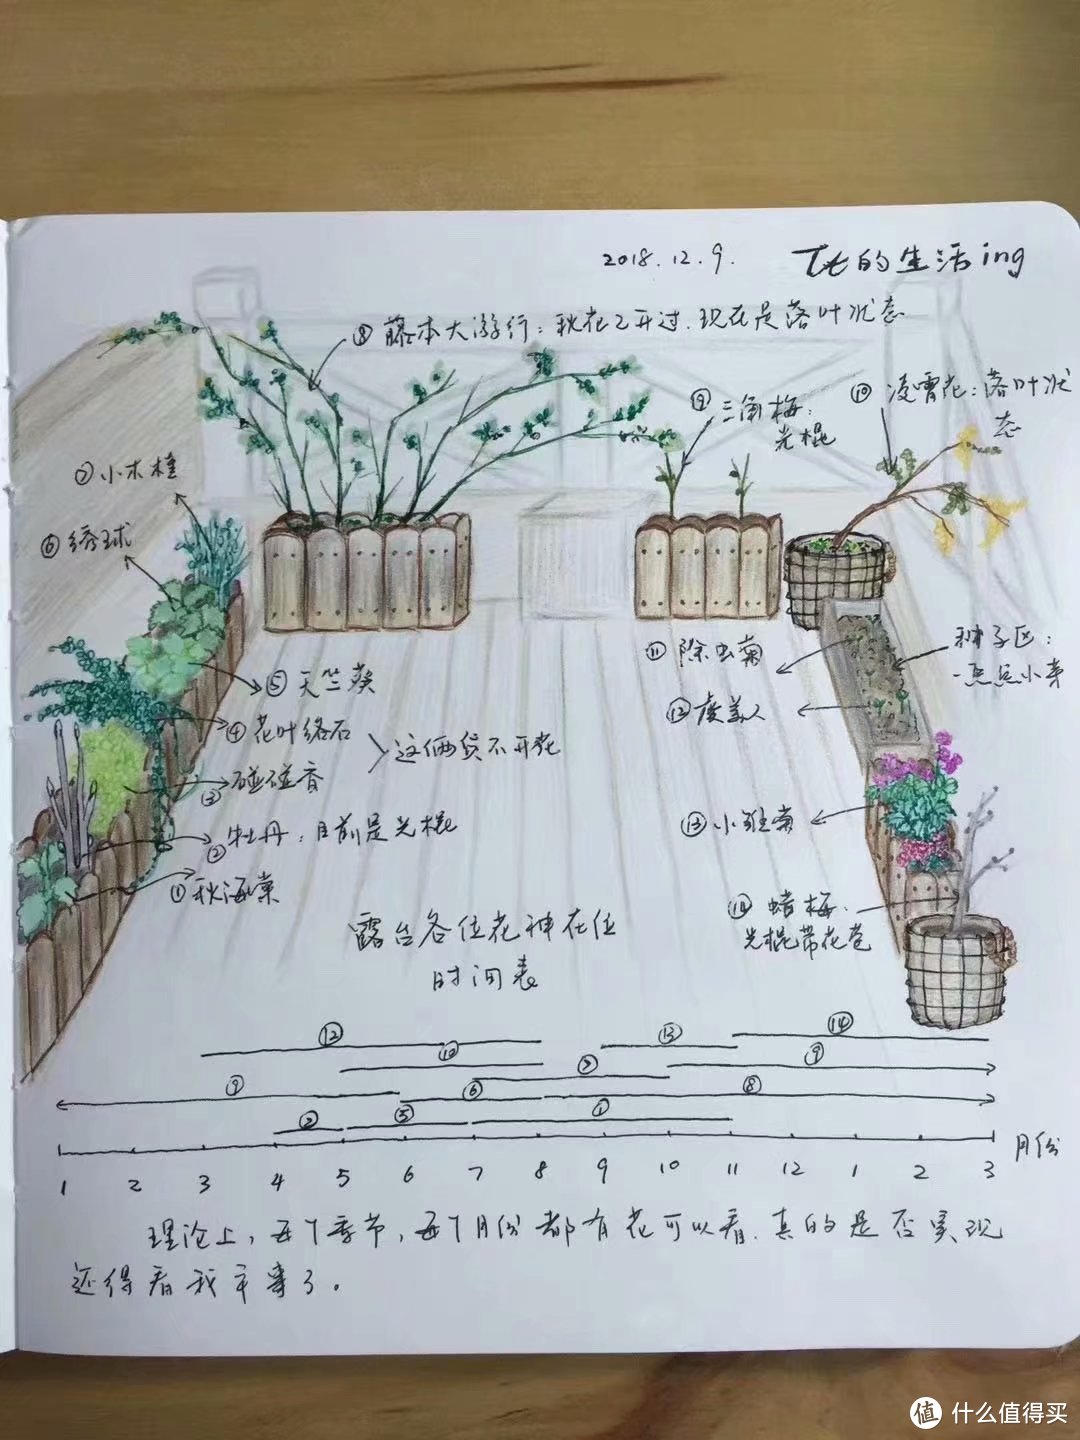 2018.12.9. 花的生活ing
⑧藤本大游行：秋花已开过.现在是落叶状态
⑨三角梅：
光棍
⑩凌霄花：落叶状
态
⑦小木槿
⑥绣球
⑤天竺葵
④花叶络石
③碰碰香
这俩货不开花
②牡丹：目前是光棍
①秋海棠
⑪除虫菊
种子区：
一点点小芽
⑫虞美人
⑬小雏菊
⑭蜡梅.
光棍带花苞
露台各位花神在任
时间表
⑫ ⑬ ⑭
⑩ ⑦ ⑨
⑨ ⑥ ⑧
② ⑤ ①
1 2 3 4 5 6 7 8 9 10 11 12 1 2 3 月份
理论上，每个季节，每个月份都有花可以看.真的是否实现
还得看我本事了。
值 什么值得买